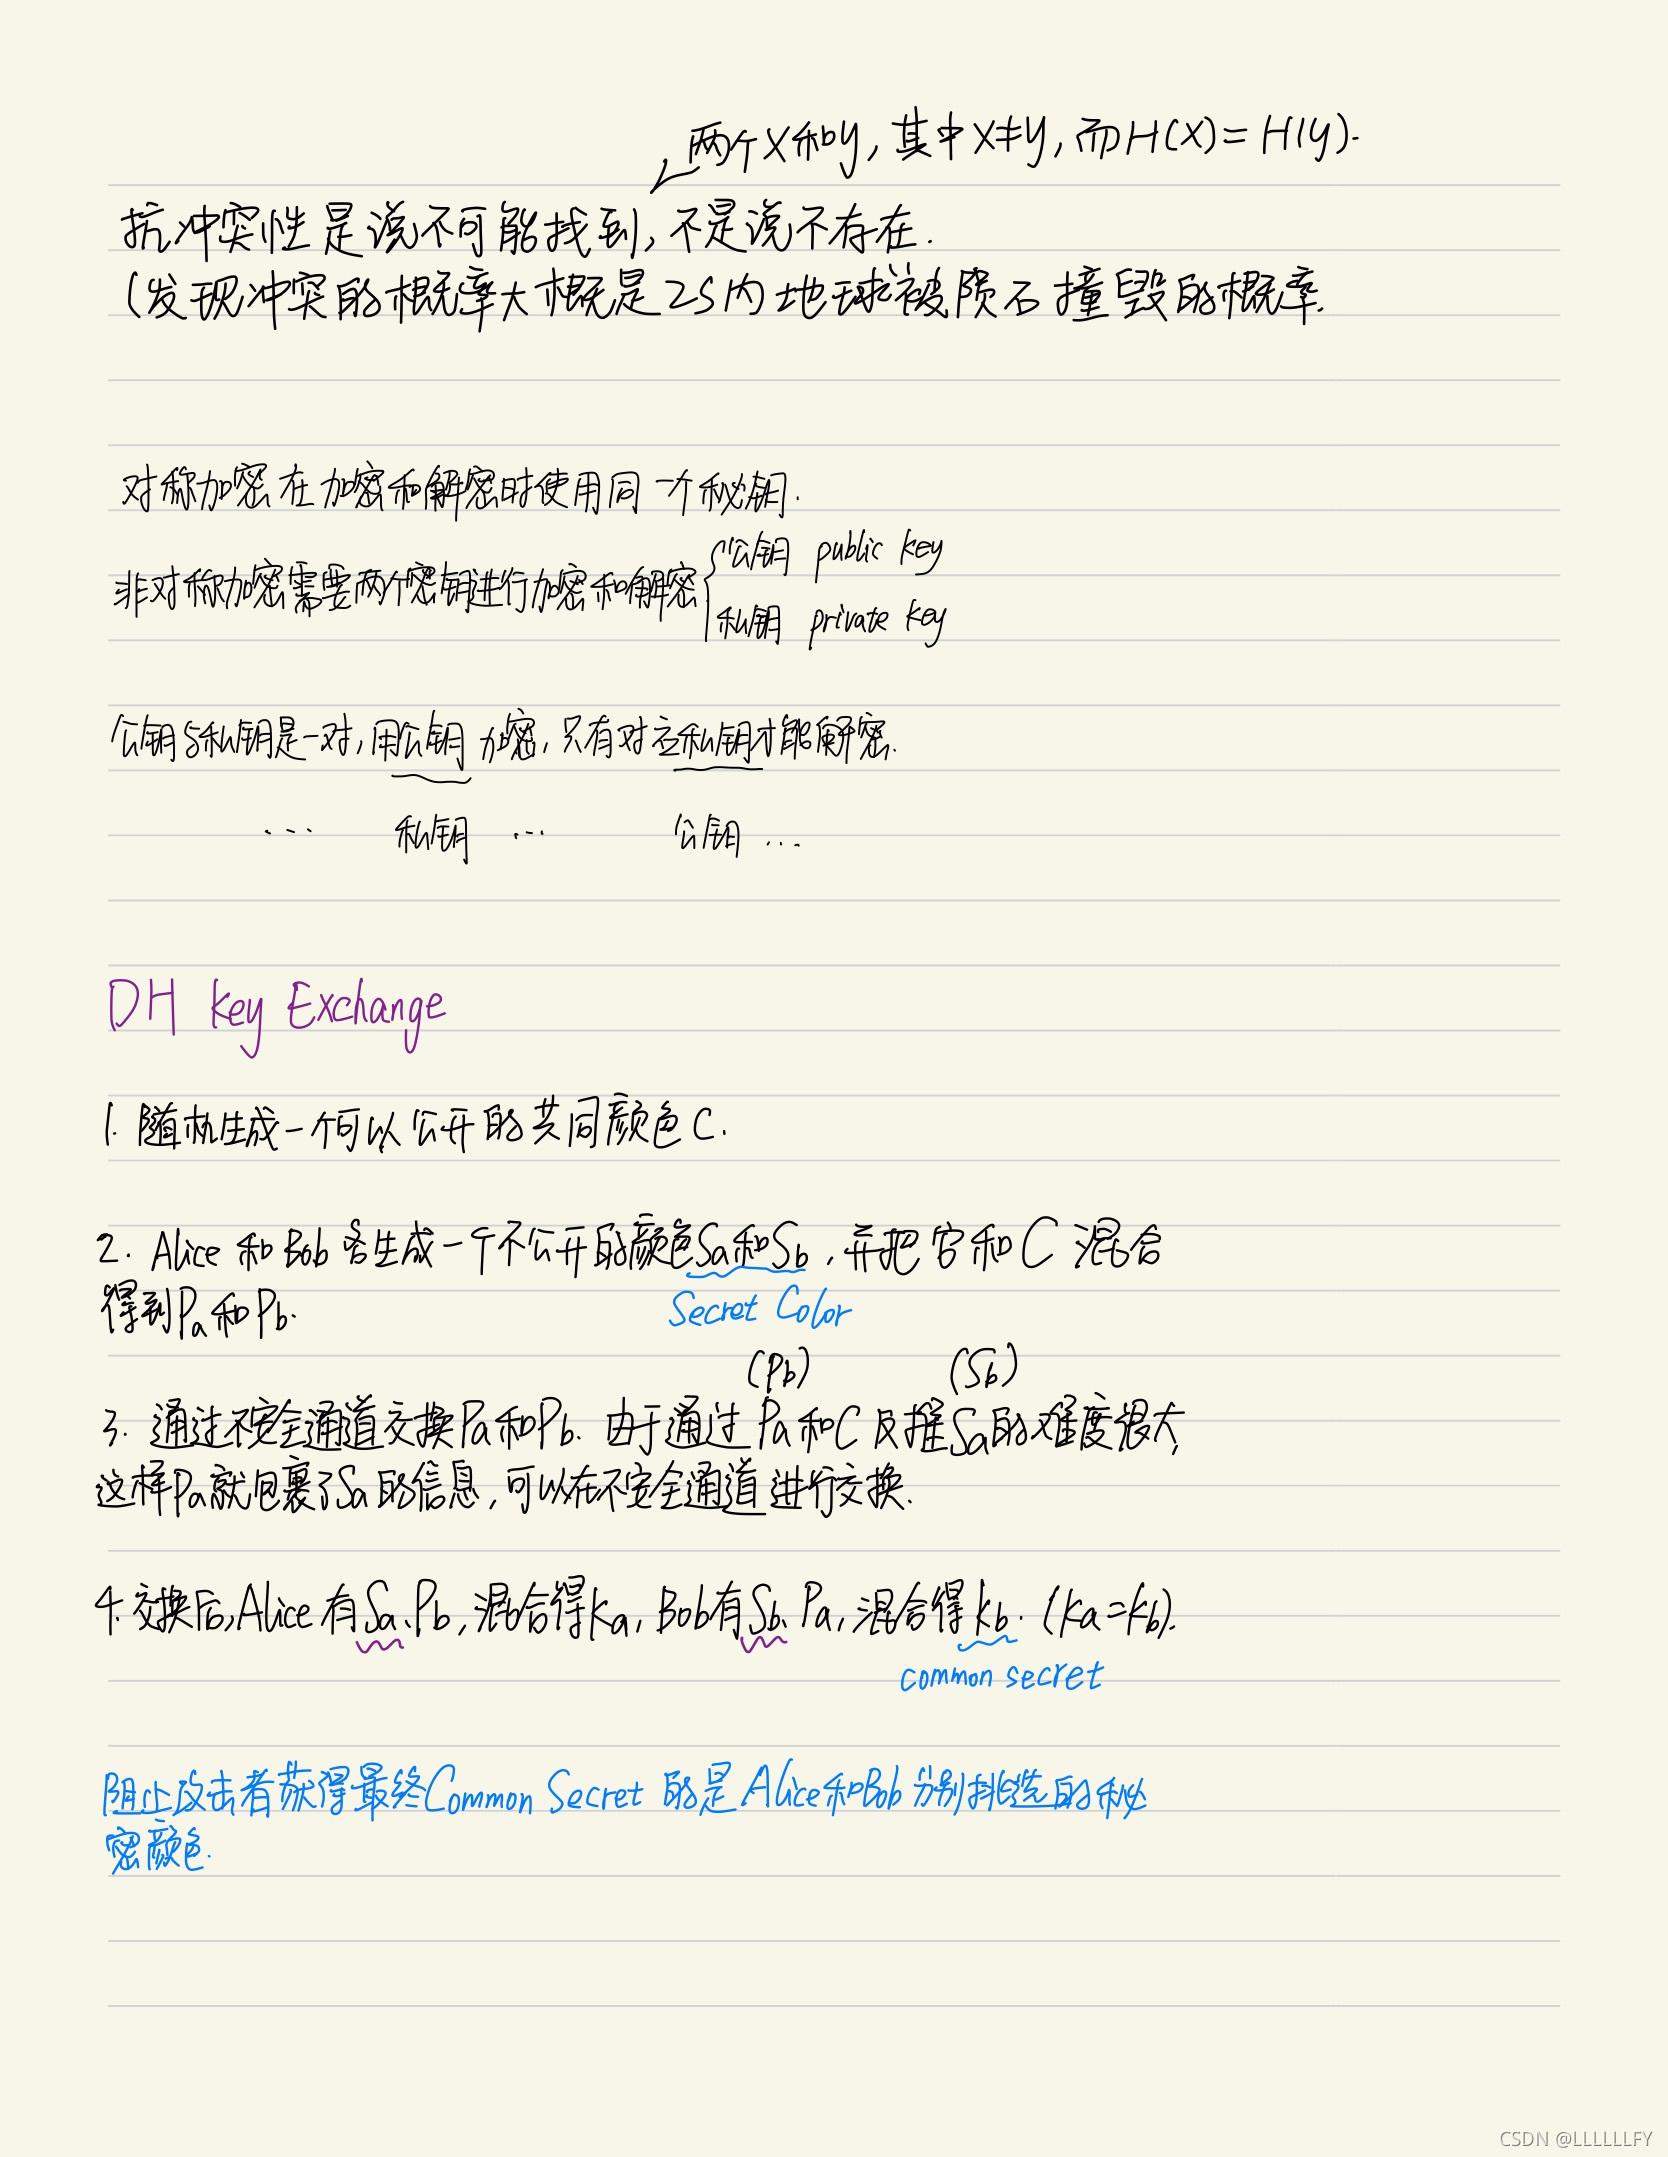 两个X和y,其中X≠y,而H(X)=H(y).
抗冲突性是说不可能找到,不是说不存在.
(发现冲突的概率大概是2S内地球被陨石撞毁的概率.
对称加密在加密和解密时使用同一个秘钥.
非对称加密需要两个密钥进行加密和解密{公钥 public key
私钥 private key
公钥与私钥是一对,用公钥加密,只有对应私钥才能解密.
... 私钥 ... 公钥 ...
DH Key Exchange
1. 随机生成一个可以公开的共同颜色C.
2. Alice 和 Bob 各生成一个不公开的颜色Sa和Sb,并把它和C混合
得到Pa和Pb.
Secret Color
(Pb) (Sb)
3. 通过不安全通道交换Pa和Pb. 由于通过Pa和C反推Sa的难度很大,
这样Pa就包裹了Sa的信息,可以在不安全通道进行交换.
4.交换后,Alice有Sa、Pb,混合得Ka,Bob有Sb、Pa,混合得Kb. (Ka=Kb).
common secret
阻止攻击者获得最终Common Secret的是Alice和Bob分别挑选的秘
密颜色.
CSDN @LLLLLLFY